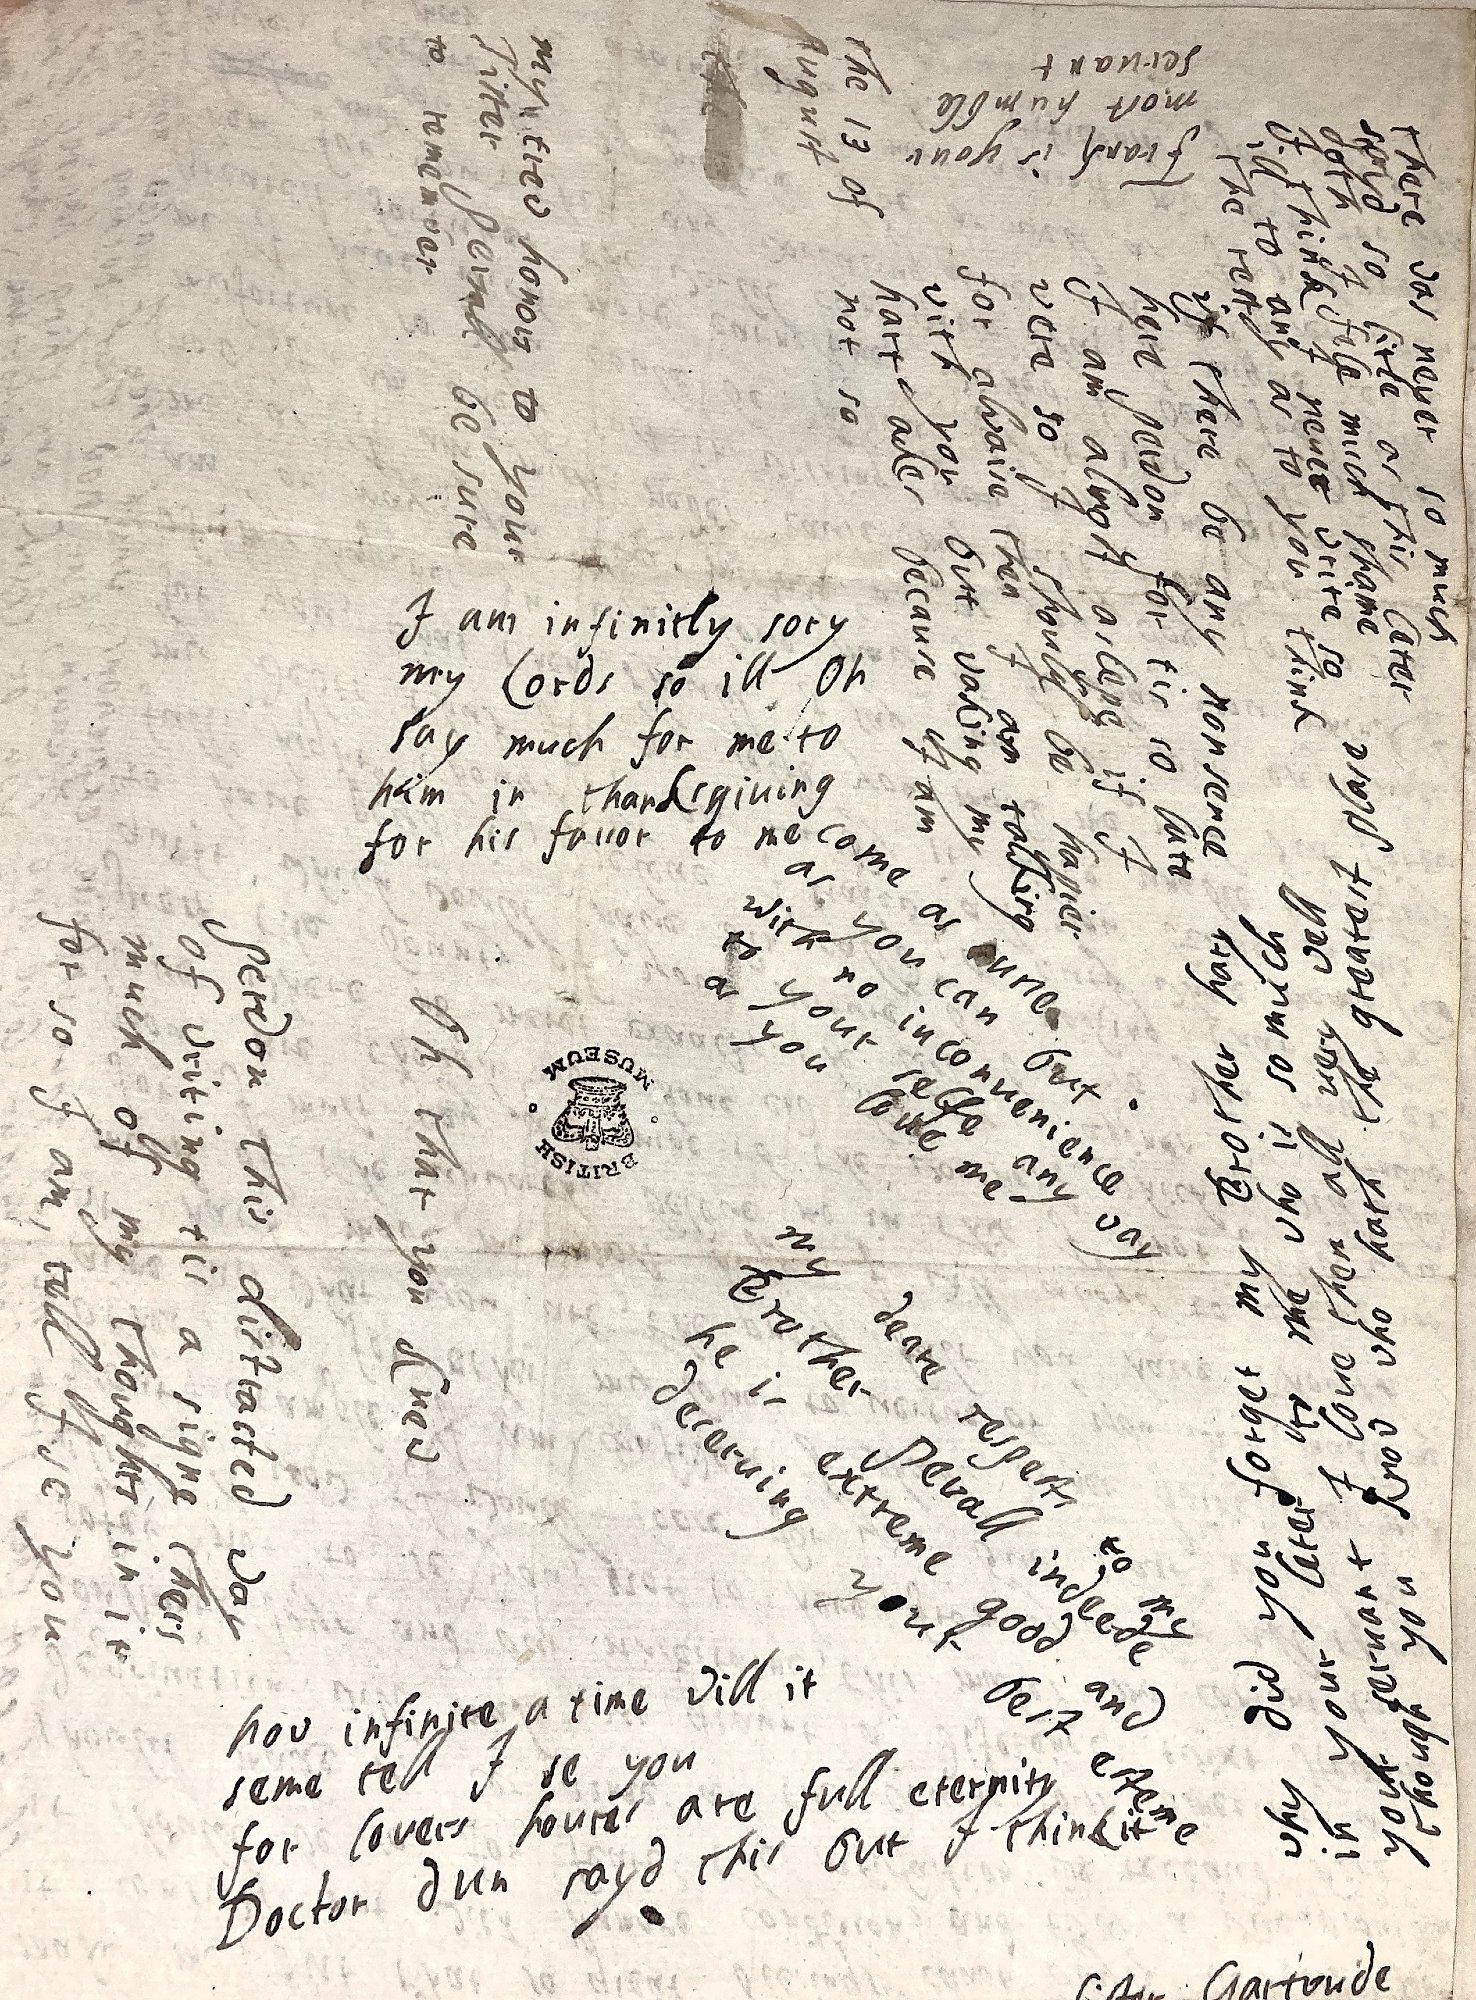 There vas never so much
sayd so litle as this Later
doth I think I use much shame
till to any as to you think
the rest
if there be any nonsence
here perdon for tis so late
I am almost aslepe if I
vere so I should be hapier
for alvaise then I am talking
vith you but vaking my
hart akes because I am
not so
Frank is your
most humble
servant
The 13 of
August
my trew honour to your
sister be sure
to remember
I am infinitly sory
my Lords so ill Oh
say much for me to
him in thanksgiving
for his favor to me
come as sune
as you can but
with no inconvenience
to your selfe any vay
as you love me
my deare respects to my
Brother Pevall indeede
he is extreme good and
deserving your best esteme
Oh that you knew
Perdon this distracted vay
of vriting tis a signe thers
much of my thoughts in it
for so I am, tell I se you
hov infinite a time vill it
seme tell I se you
for lovers houres are full eternity
Doctor dun sayd this but I think it
vhy did you forget my Brother hary
in your later to me vho is so much
your servant I love them all very vell
Thought you knov vho hath the greatest please
sister Gartrude
BRITISH
MUSEUM